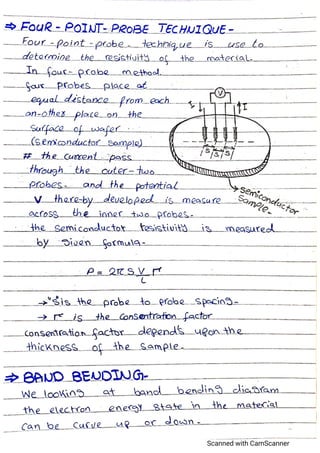 ⇒ FOUR-POINT-PROBE TECHNIQUE-
Four-point-probe. technique is use to
determine the resistivity of the material.
In four-probe method.
four probes place at
equal distance from each
an-other place on the
surface of wafer.
(semiconductor sample)
# the current pass
through the outer-two
probes. and the potential
V thereby developed is measure
across the inner two probes.
V
I
I
S S S
semiconductor
sample.
the semiconductor resistivity is measured
by given formula-
P = 2π S V F
I
→ "S is the probe to probe spacing-
→ F is the consentration factor
consentration factor depend's upon the
thickness of the sample.
⇒ BAND BENDING-
We looking at band bending diagram
the electron energy state in the material
can be curve up or down.
Scanned with CamScanner